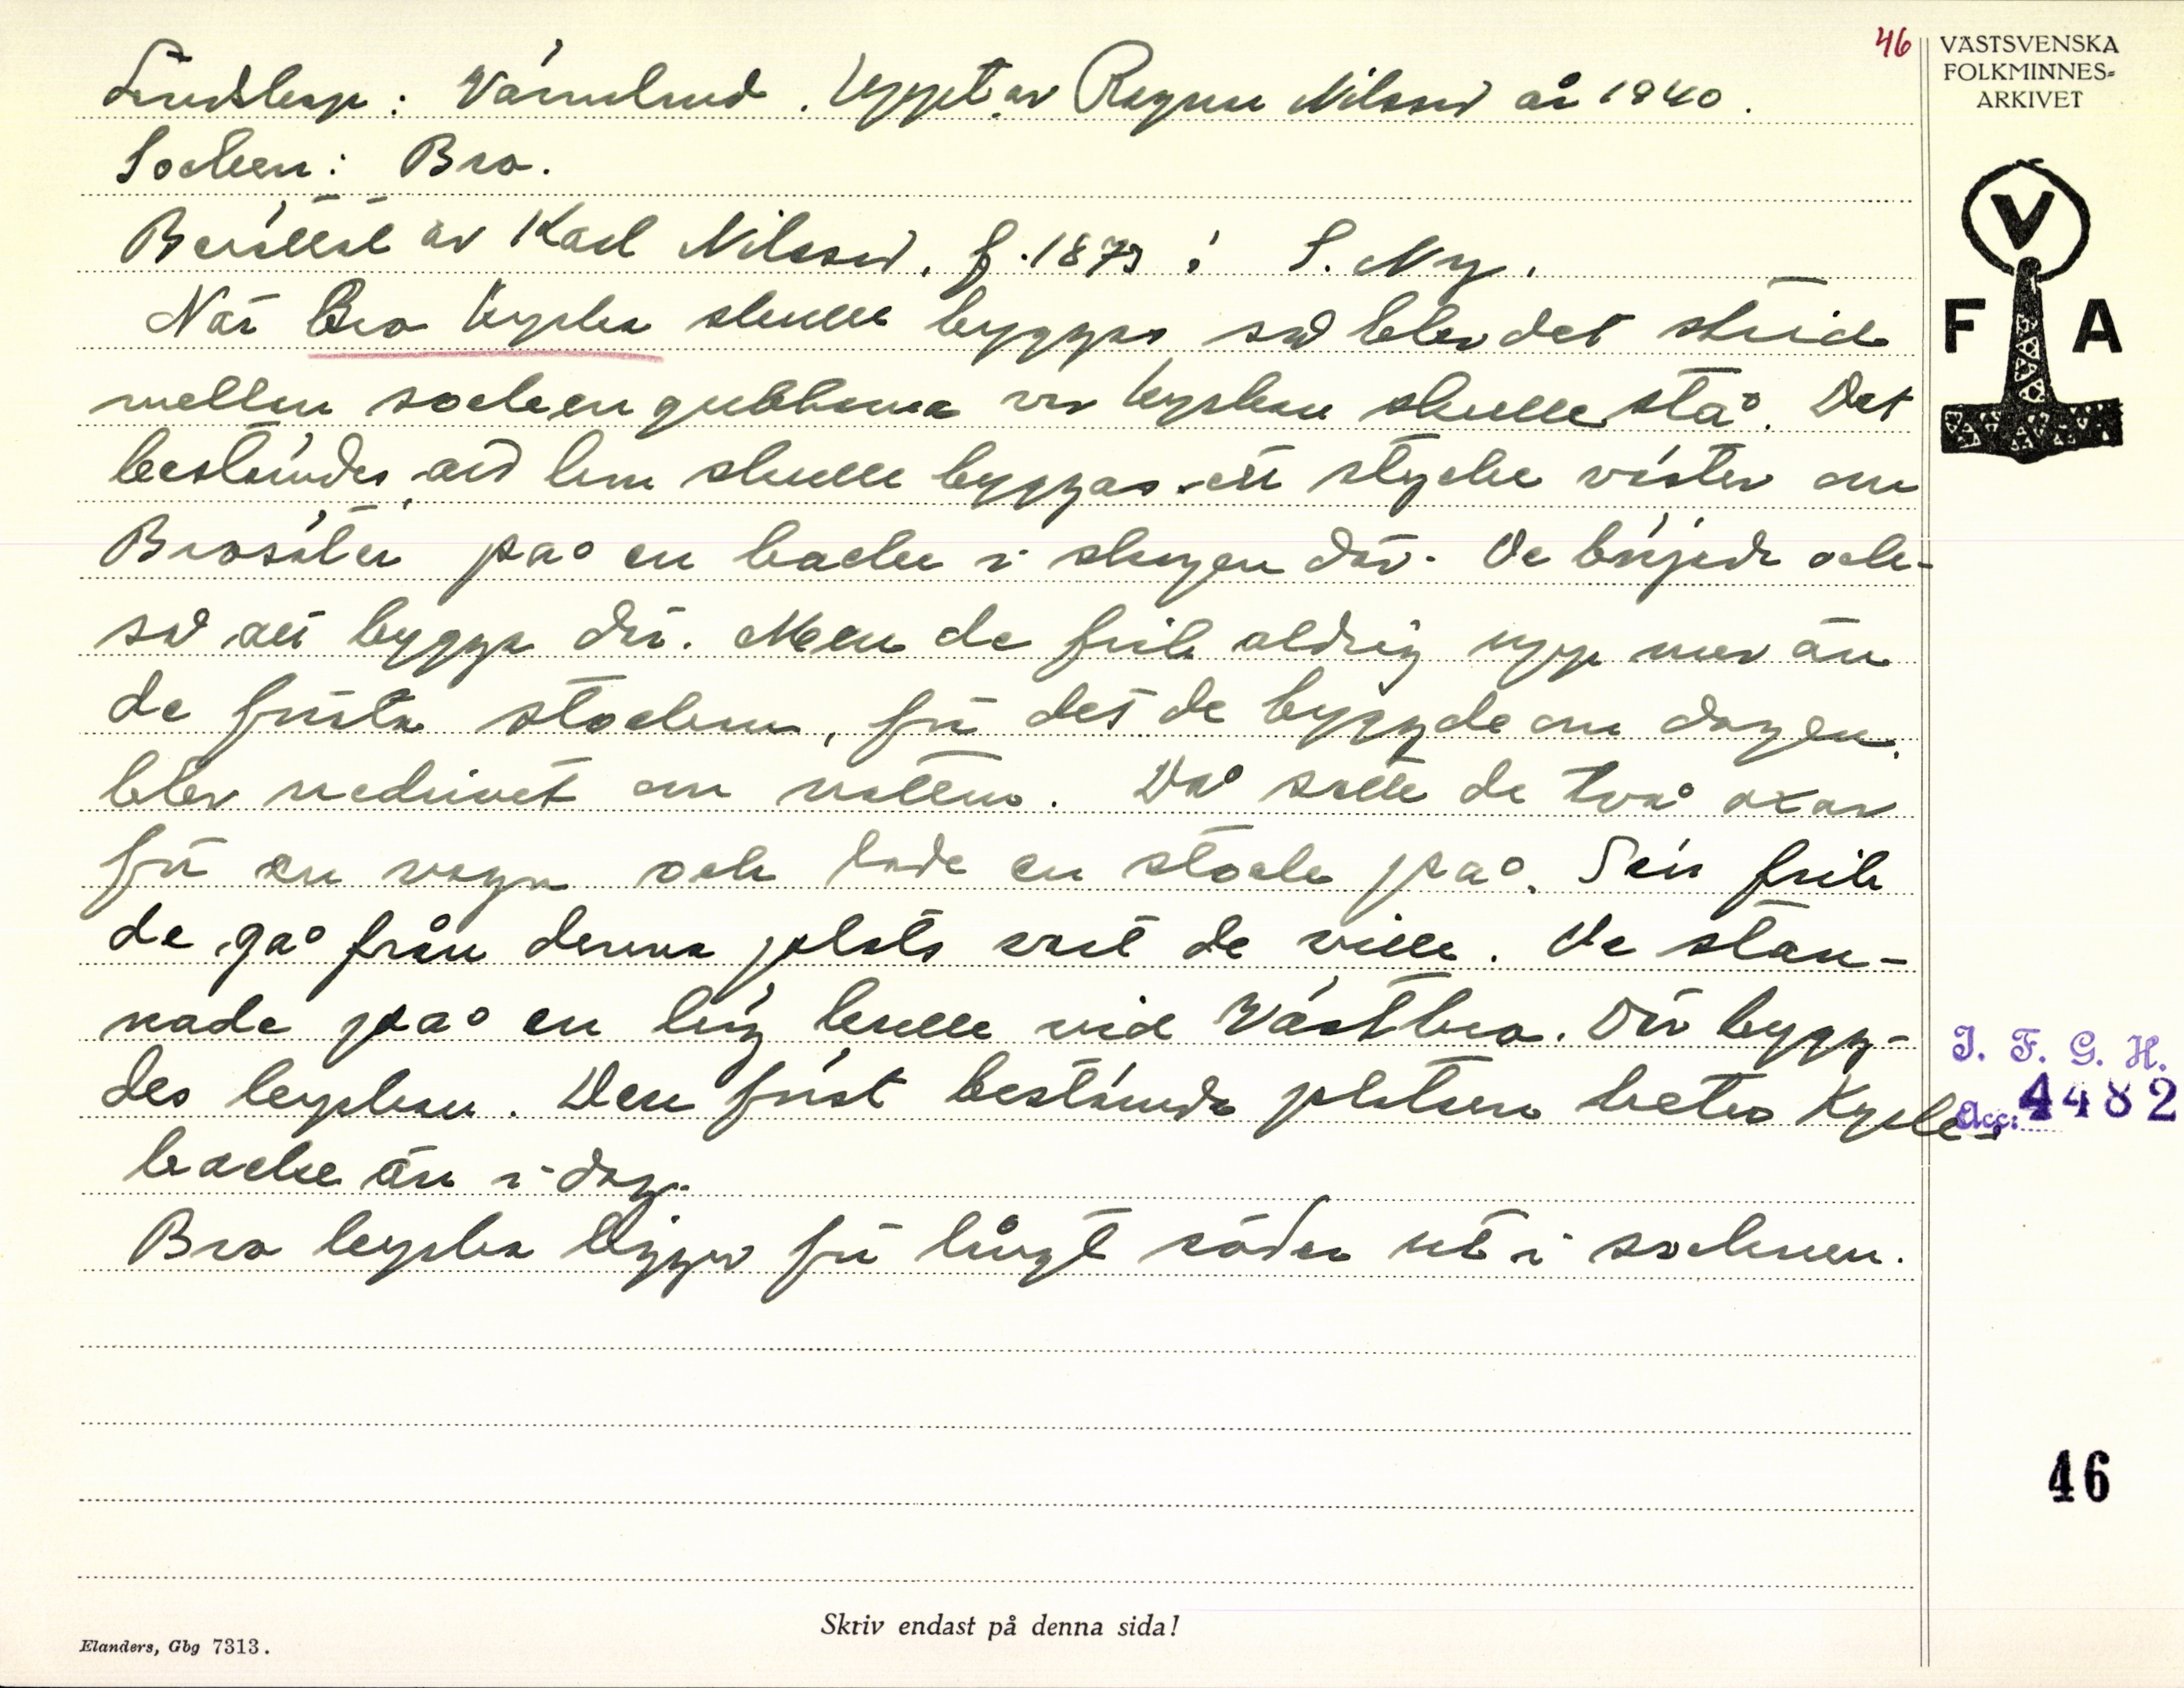 46
VÄSTSVENSKA
FOLKMINNES-
ARKIVET
Landskap: Värmland. Uppt. av Ragnar Nilsson år 1940.
Socken: Bro.
Berättat av Karl Nilsson, f. 1873 i S. Ny.
När Bro kyrka skulle byggas så blev det strid
mellan sockengubbarna var kyrkan skulle stå. Det
bestämdes att hon skulle byggas ett stycke väster om
Brosäter på en backe i skogen där. De började ock-
så att bygga där. Men de fick aldrig upp mer än
de första stockarna, för det de byggde om dagen
blev nedrivet om natten. Då satte de två oxar
för en vagn och lade en stock på. Sen fick
de gå från denna plats vart de ville. De stan-
nade på en hög kulle vid Västbro. Där bygg-
des kyrkan. Den först bestämda platsen hetes Kyrke-
backe än i dag.
Bro kyrka ligger för långt söder ut i socknen.
V
F A
I. F. G. H.
Acc: 4482
46
Skriv endast på denna sida!
Elanders, Gbg 7313.